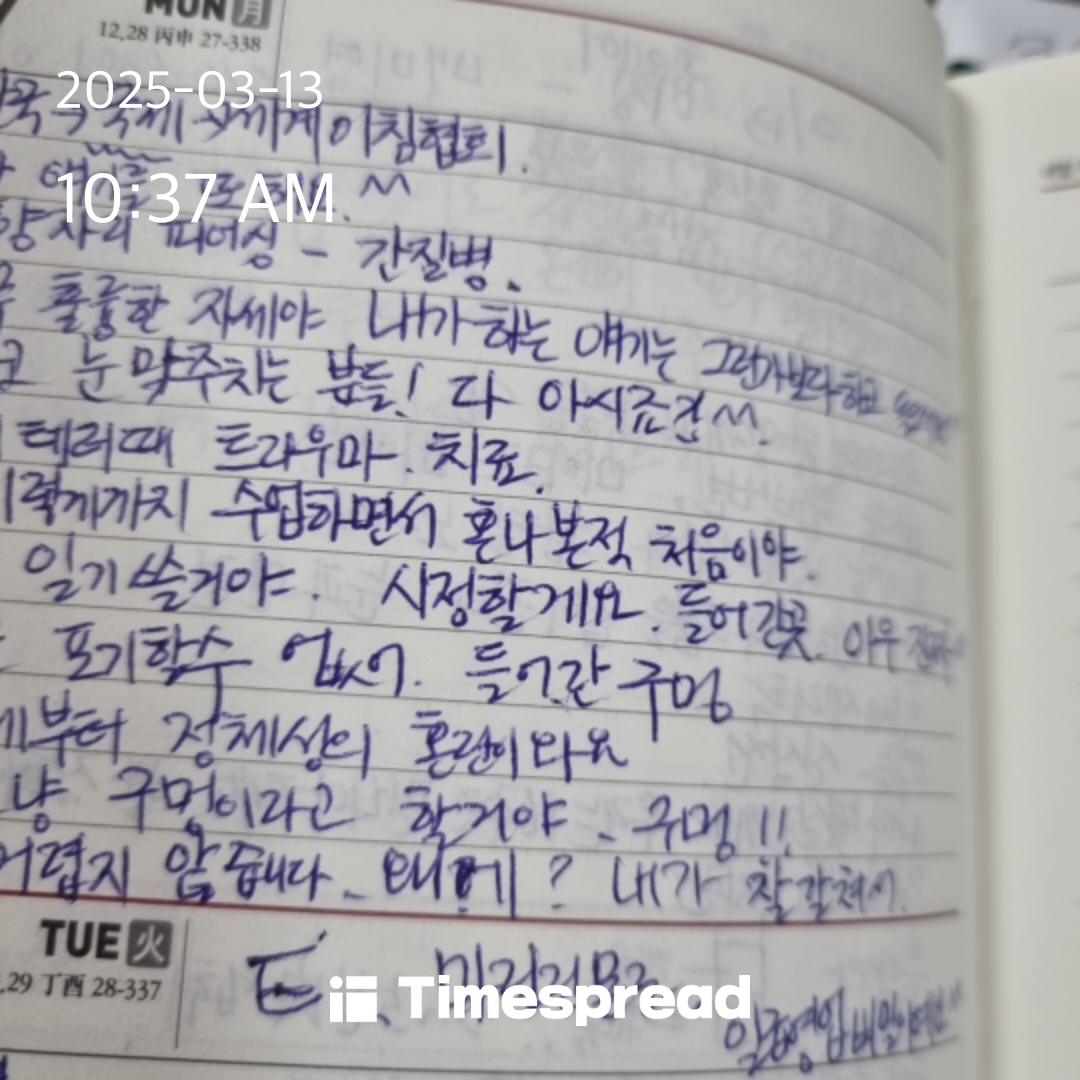 MON 月
12.28 丙申 27-338
2025-03-13
국제 세계이침협회.
10:37 AM
^^
피어싱 - 간질병.
훌륭한 자세야 내가 하는 얘기는 그런가보다하고
눈 맞주치는 분들! 다 아시죠건^^.
테러때 트라우마. 치료.
이렇게까지 수업하면서 혼나본적 처음이야.
일기 쓸거야. 시정할게요. 들어간곳. 아우
포기할수 없어. 들어간 구멍
부터 정체성의 혼란이 와요
구멍이라고 할거야. 구멍!!
어렵지 않습니다. 왜 ? 내가 잘 갈쳐서.
TUE 火
.29 丁酉 28-337
E.
Timespread